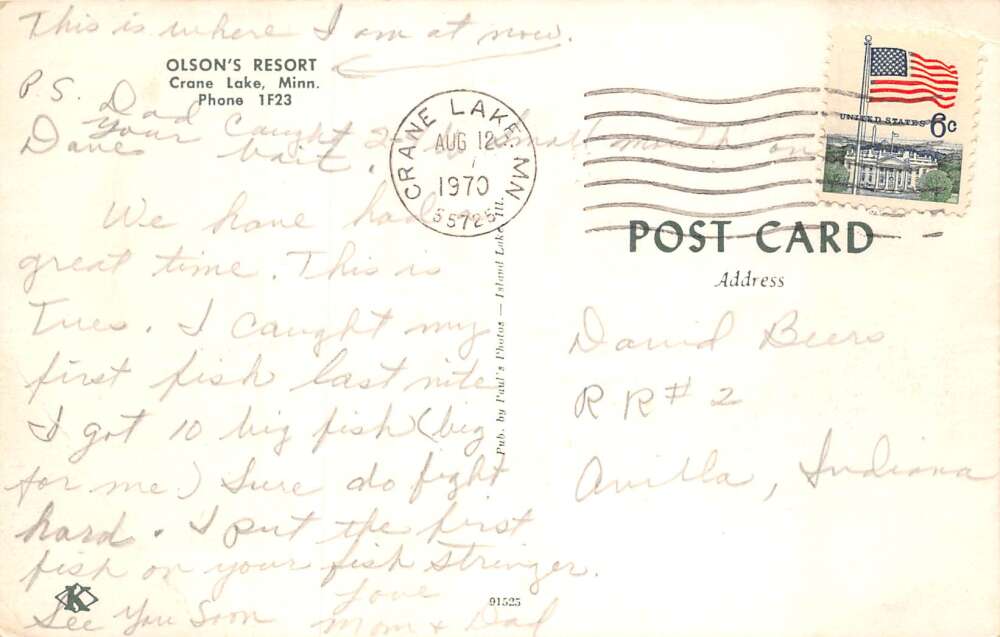 This is where I am at now.
OLSON'S RESORT
Crane Lake, Minn.
Phone 1F23
P S. Dad caught 2 small mouth on
Your
Daves bait.
We have had
great time. This is
Tues. I caught my
first fish last nite
I got 10 big fish (big
for me) Sure do fight
hard. I put the first
fish on your fish stringer.
See You Soon Love
Mom & Dad
K
CRANE LAKE, MN
AUG 12
1970
55725
UNITED STATES 6c
POST CARD
Address
David Beers
R R # 2
Avilla, Indiana
Pub. by Paul's Photos — Island Lake, Ill.
91525